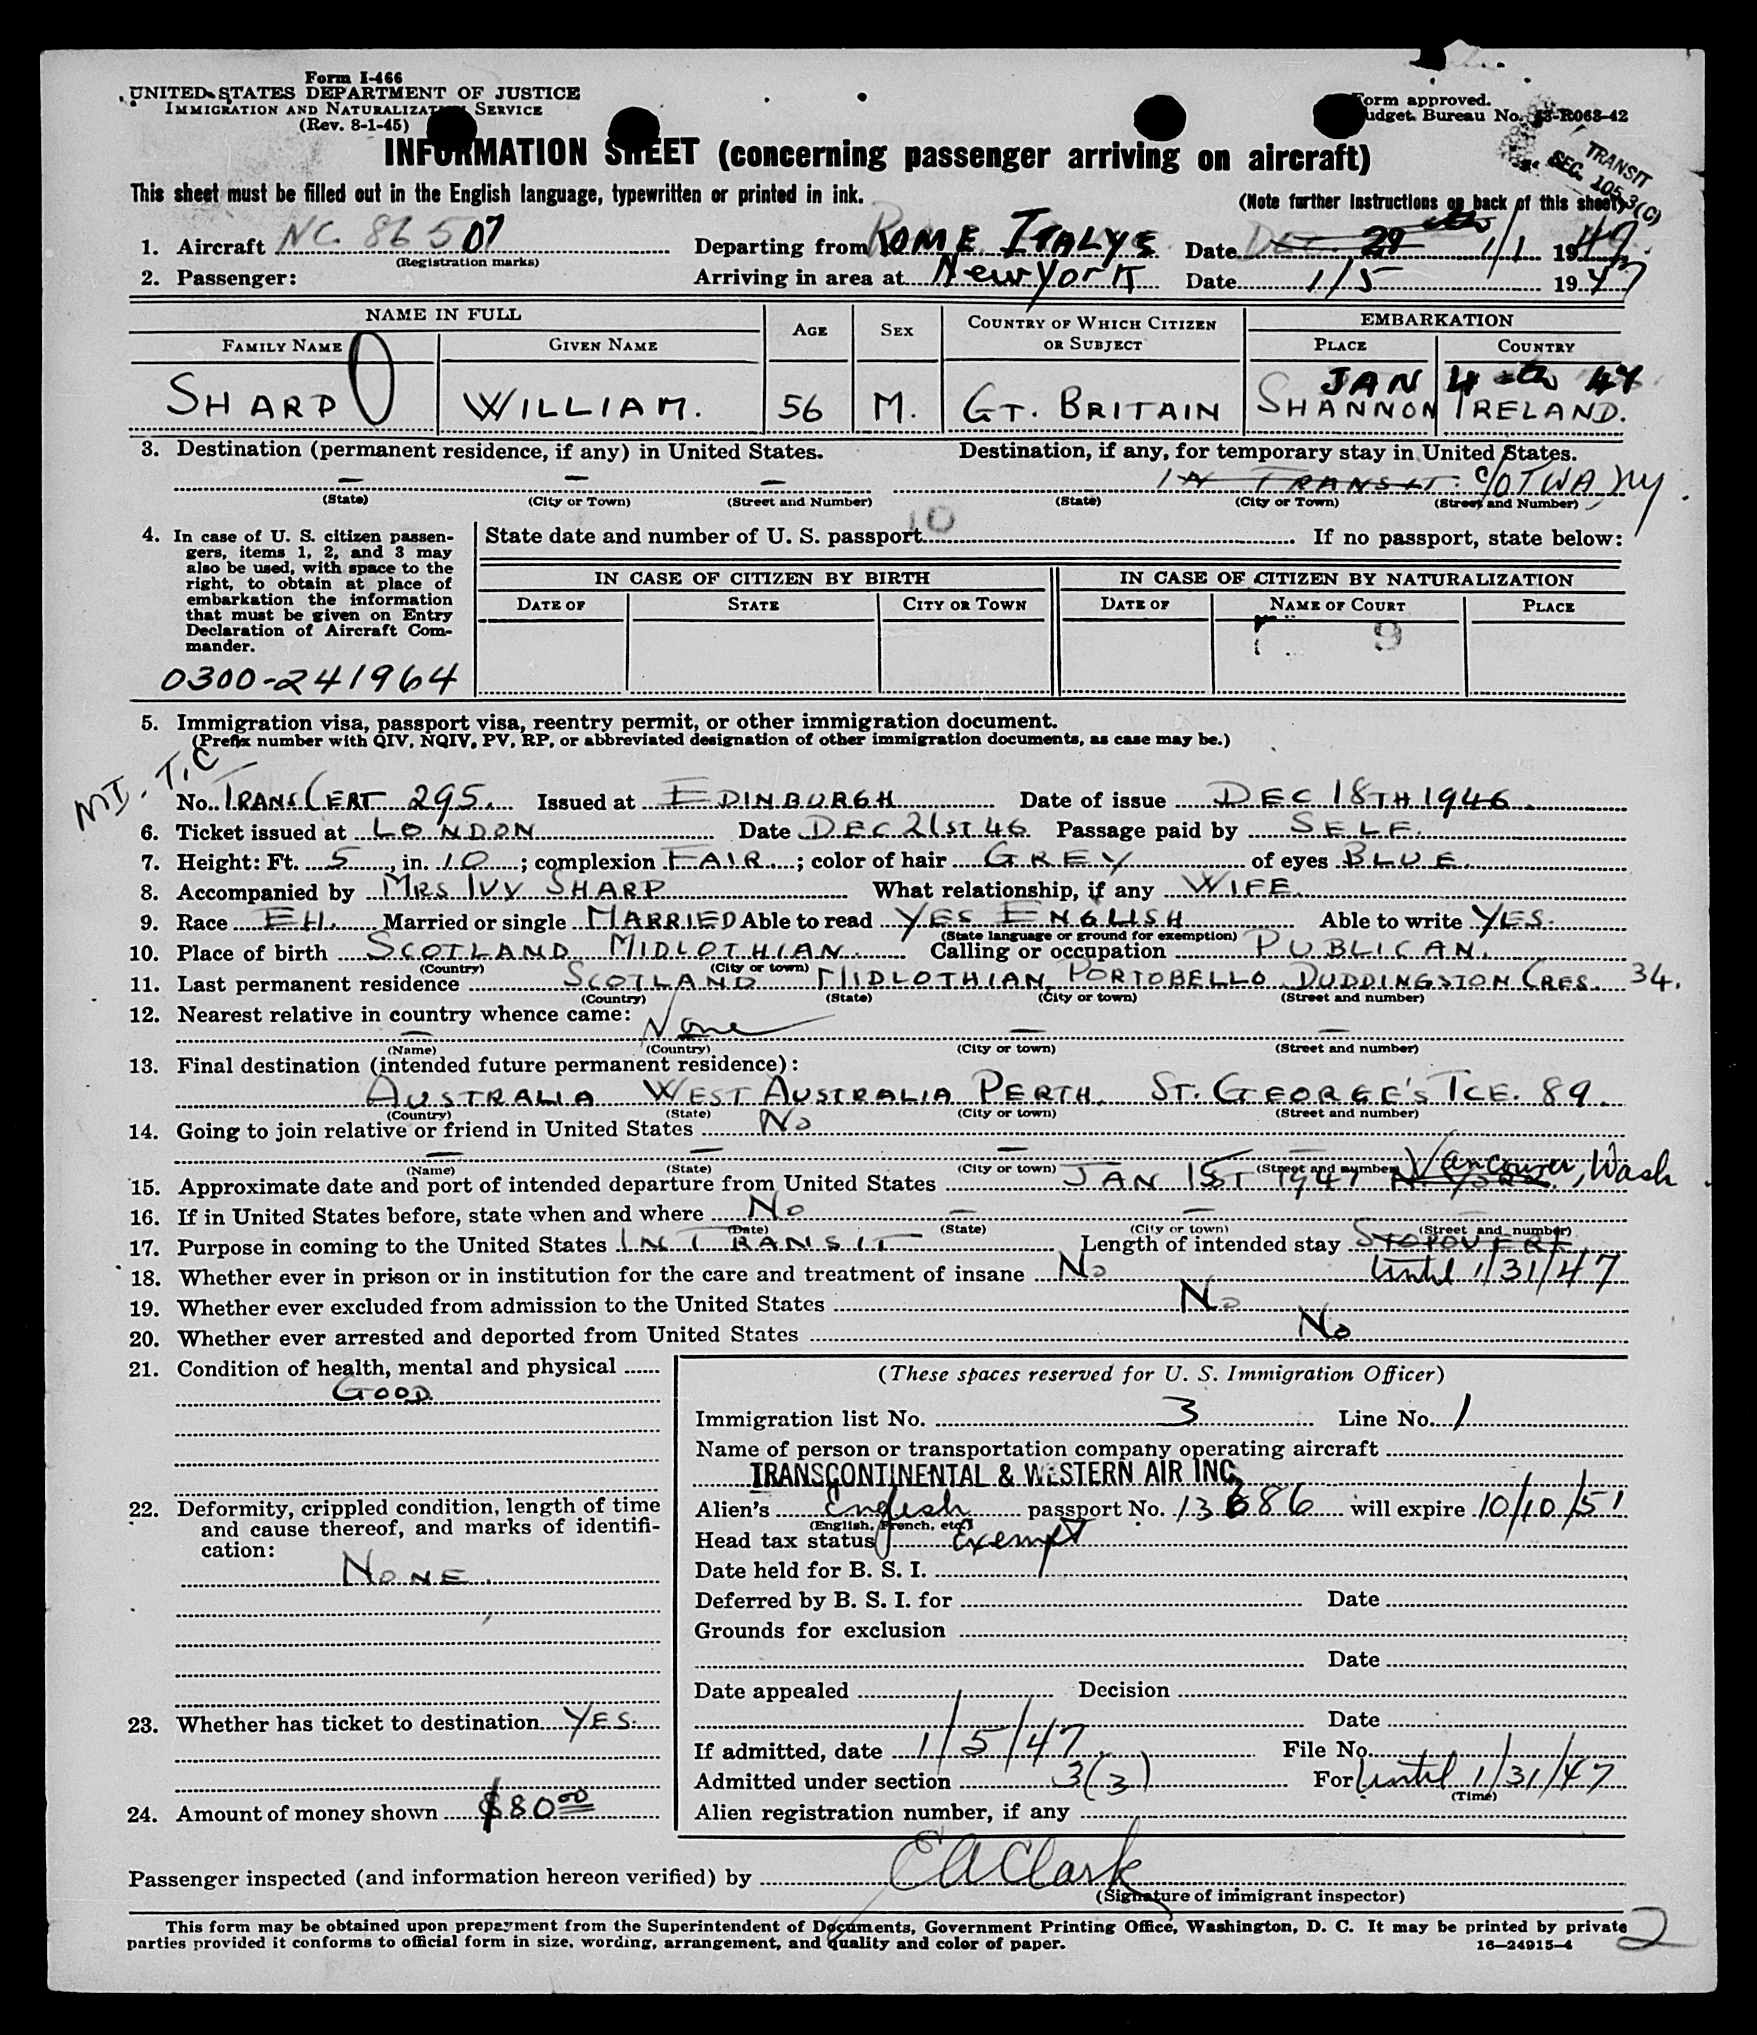 Form I-466
UNITED STATES DEPARTMENT OF JUSTICE
IMMIGRATION AND NATURALIZATION SERVICE
(Rev. 8-1-45)
Form approved.
Budget Bureau No. 43-R068-42
TRANSIT
SEC. 105.3(C)
INFORMATION SHEET (concerning passenger arriving on aircraft)
This sheet must be filled out in the English language, typewritten or printed in ink.
(Note further instructions on back of this sheet)
1. Aircraft NC 86507 Departing from ROME ITALY Date Dec. 29 1/1 1947
(Registration marks)
2. Passenger: Arriving in area at New York Date 1/5 1947
NAME IN FULL AGE SEX COUNTRY OF WHICH CITIZEN OR SUBJECT EMBARKATION
FAMILY NAME GIVEN NAME PLACE COUNTRY
JAN 4th 47
SHARP WILLIAM. 56 M. GT. BRITAIN SHANNON IRELAND.
3. Destination (permanent residence, if any) in United States. Destination, if any, for temporary stay in United States.
— — — IN TRANSIT. c/o TWA NY.
(State) (City or Town) (Street and Number) (State) (City or Town) (Street and Number)
4. In case of U. S. citizen passen-
gers, items 1, 2, and 3 may
also be used, with space to the
right, to obtain at place of
embarkation the information
that must be given on Entry
Declaration of Aircraft Com-
mander.
0300-241964
10
State date and number of U. S. passport If no passport, state below:
IN CASE OF CITIZEN BY BIRTH IN CASE OF CITIZEN BY NATURALIZATION
DATE OF STATE CITY OR TOWN DATE OF NAME OF COURT PLACE
9
5. Immigration visa, passport visa, reentry permit, or other immigration document.
(Prefix number with QIV, NQIV, PV, RP, or abbreviated designation of other immigration documents, as case may be.)
NI. T.C
No. TRANS CERT 295. Issued at EDINBURGH Date of issue DEC 18TH 1946.
6. Ticket issued at LONDON Date DEC 21ST 46 Passage paid by SELF.
7. Height: Ft. 5, in. 10; complexion FAIR; color of hair GREY of eyes BLUE.
8. Accompanied by MRS IVY SHARP What relationship, if any WIFE.
9. Race EH. Married or single MARRIED Able to read YES ENGLISH Able to write YES.
(State language or ground for exemption)
10. Place of birth SCOTLAND MIDLOTHIAN. Calling or occupation PUBLICAN.
(Country) (City or town)
11. Last permanent residence SCOTLAND MIDLOTHIAN PORTOBELLO DUDDINGSTON CRES. 34.
(Country) (State) (City or town) (Street and number)
12. Nearest relative in country whence came:
— None — —
(Name) (Country) (City or town) (Street and number)
13. Final destination (intended future permanent residence):
AUSTRALIA WEST AUSTRALIA PERTH. ST. GEORGE'S TCE. 89.
(Country) (State) (City or town) (Street and number)
14. Going to join relative or friend in United States No
— — — —
(Name) (State) (City or town) (Street and number)
15. Approximate date and port of intended departure from United States JAN 1ST 1947 Vancouver, Wash.
16. If in United States before, state when and where No — — —
(Date) (State) (City or town) (Street and number)
17. Purpose in coming to the United States IN TRANSIT Length of intended stay STOPOVER
18. Whether ever in prison or in institution for the care and treatment of insane No Until 1/31/47
19. Whether ever excluded from admission to the United States No
20. Whether ever arrested and deported from United States No
21. Condition of health, mental and physical
GOOD.
22. Deformity, crippled condition, length of time
and cause thereof, and marks of identifi-
cation:
NONE.
23. Whether has ticket to destination YES.
24. Amount of money shown $80.00
(These spaces reserved for U. S. Immigration Officer)
Immigration list No. 3 Line No. 1
Name of person or transportation company operating aircraft
TRANSCONTINENTAL & WESTERN AIR INC.
Alien's English passport No. 13686 will expire 10/10/51
(English, French, etc.)
Head tax status Exempt
Date held for B. S. I.
Deferred by B. S. I. for Date
Grounds for exclusion
Date
Date appealed Decision
Date
If admitted, date 1/5/47 File No.
Admitted under section 3(3) For Until 1/31/47
(Time)
Alien registration number, if any
Passenger inspected (and information hereon verified) by EA Clark
(Signature of immigrant inspector)
This form may be obtained upon prepayment from the Superintendent of Documents, Government Printing Office, Washington, D. C. It may be printed by private
parties provided it conforms to official form in size, wording, arrangement, and quality and color of paper.
16—24915-4
2